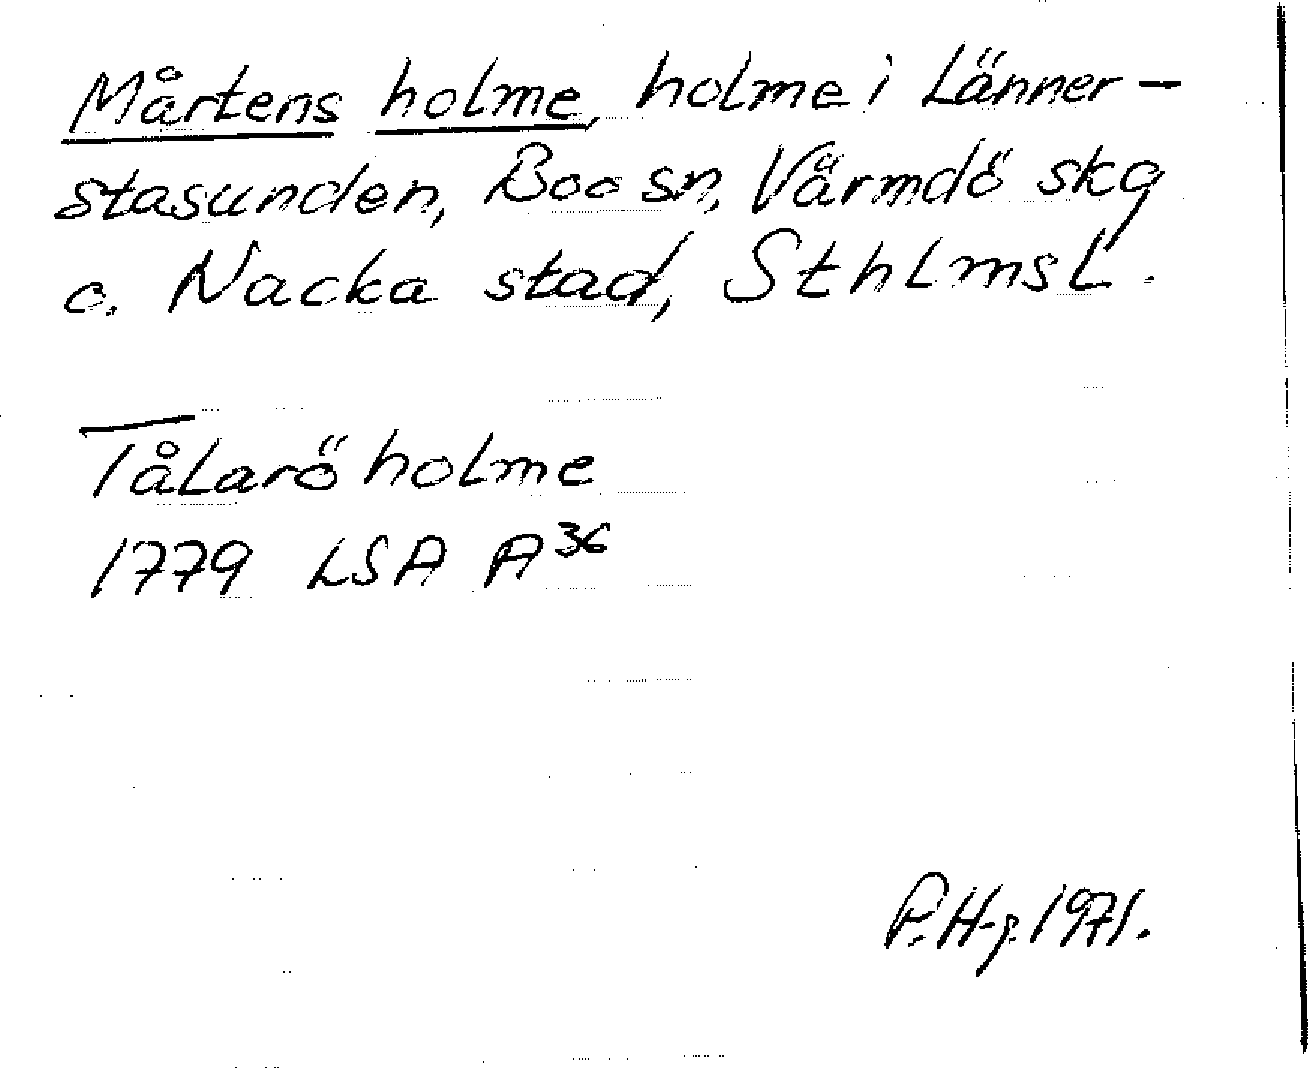 Mårtens holme, holme i Länner-
stasunden, Boo sn, Värmdö skg
o. Nacka stad, SthLms L.
Tålarö holme
1779 LSA A 36
P. H-g. 1971.